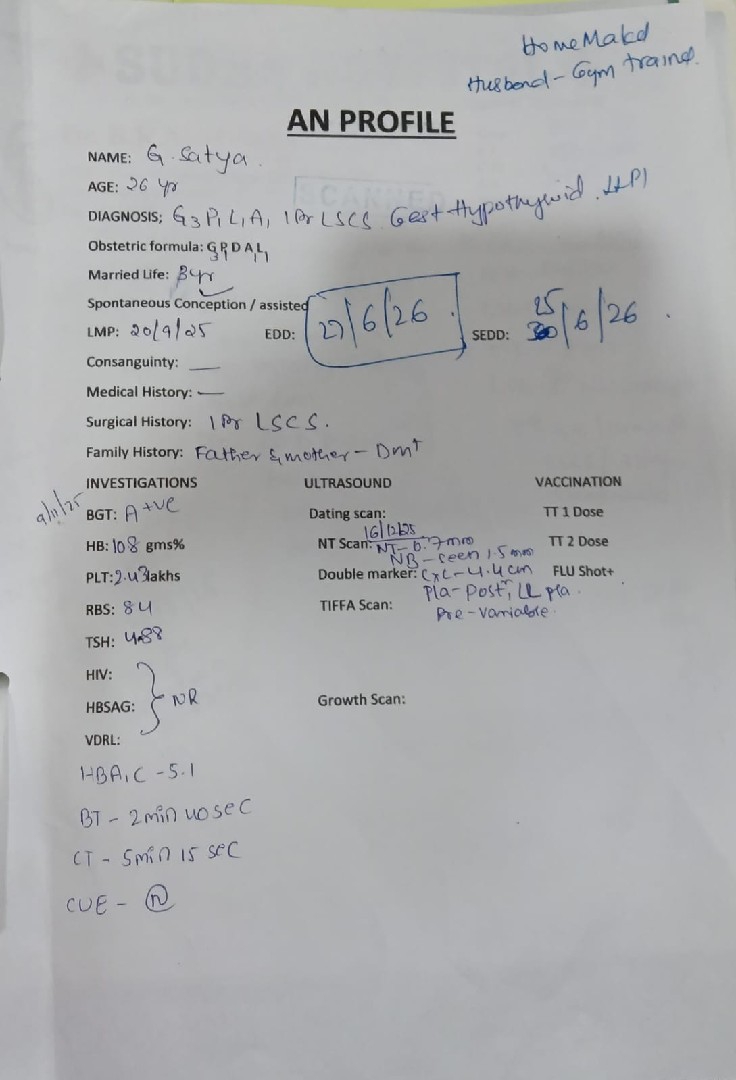 HomeMaker
Husband - Gym trainer.
AN PROFILE
NAME: G. Satya.
AGE: 26 yr
SCANNED
DIAGNOSIS; G3P1L1A1 1 Pr LSCS Gest-Hypothyroid. LLPl
Obstetric formula: G3P1DA1L1
Married Life: 3yr
Spontaneous Conception / assisted
LMP: 20/9/25 EDD: 27/6/26. SEDD: 25/6/26.
Consanguinty: —
Medical History: —
Surgical History: 1 Pr LSCS.
Family History: Father & mother - Dm+
INVESTIGATIONS ULTRASOUND VACCINATION
9/11/25
BGT: A +ve Dating scan: TT 1 Dose
16/12/25
HB: 10.8 gms% NT Scan: NT- 0.7mm TT 2 Dose
NB - seen 1.5mm
PLT: 2.43lakhs Double marker: CxL - 4.4cm FLU Shot+
Pla- Post, LL pla.
RBS: 84 TIFFA Scan: Pre - Variable.
TSH: 4.88
HIV:
HBSAG: } NR Growth Scan:
VDRL:
HBA1C - 5.1
BT - 2min 40sec
CT - 5min 15 sec
CUE - N